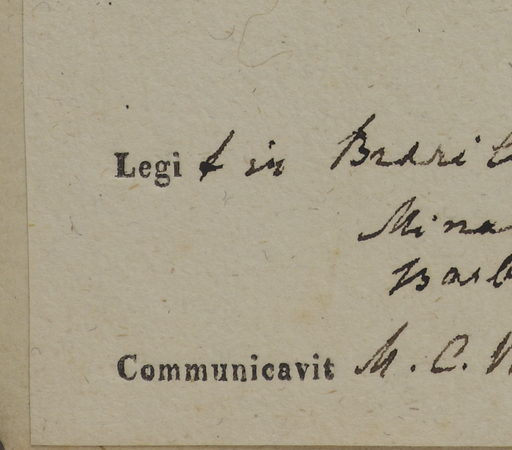 Legi in
Mina
Barb
Communicavit M. C.